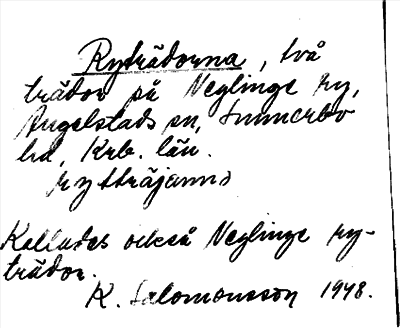 Ryträdorna, två
trädor på Neglinge ry,
Angelstads sn, Sunnerbo
hd, Krb. län.
rytträjarna
Kallades också Neglinge ry-
trädor.
K. Salomonsson 1948.